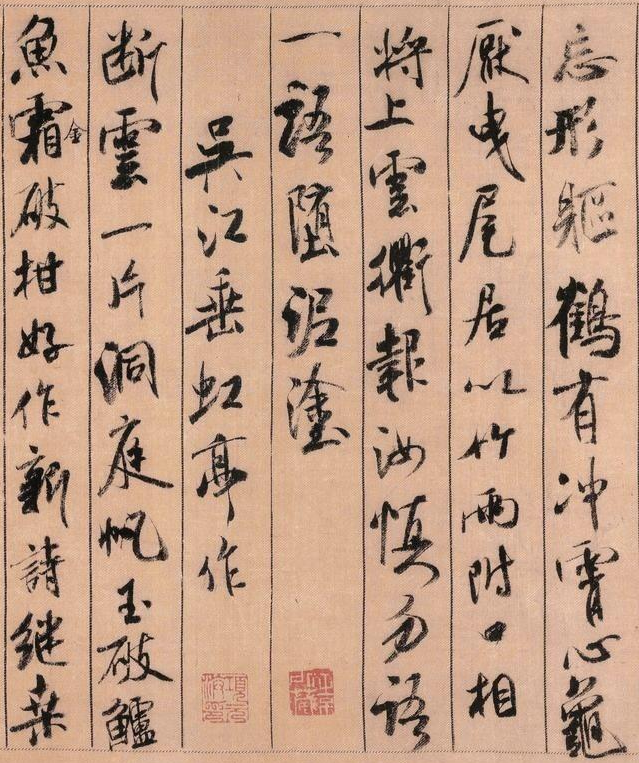 忘形軀鶴有冲霄心龜
厭曳尾居以竹兩附口相
將上雲衢報汝慎勿語
一語墮泥塗
吳江垂虹亭作
断雲一片洞庭帆玉破鱸
魚霜金破柑好作新詩継桑